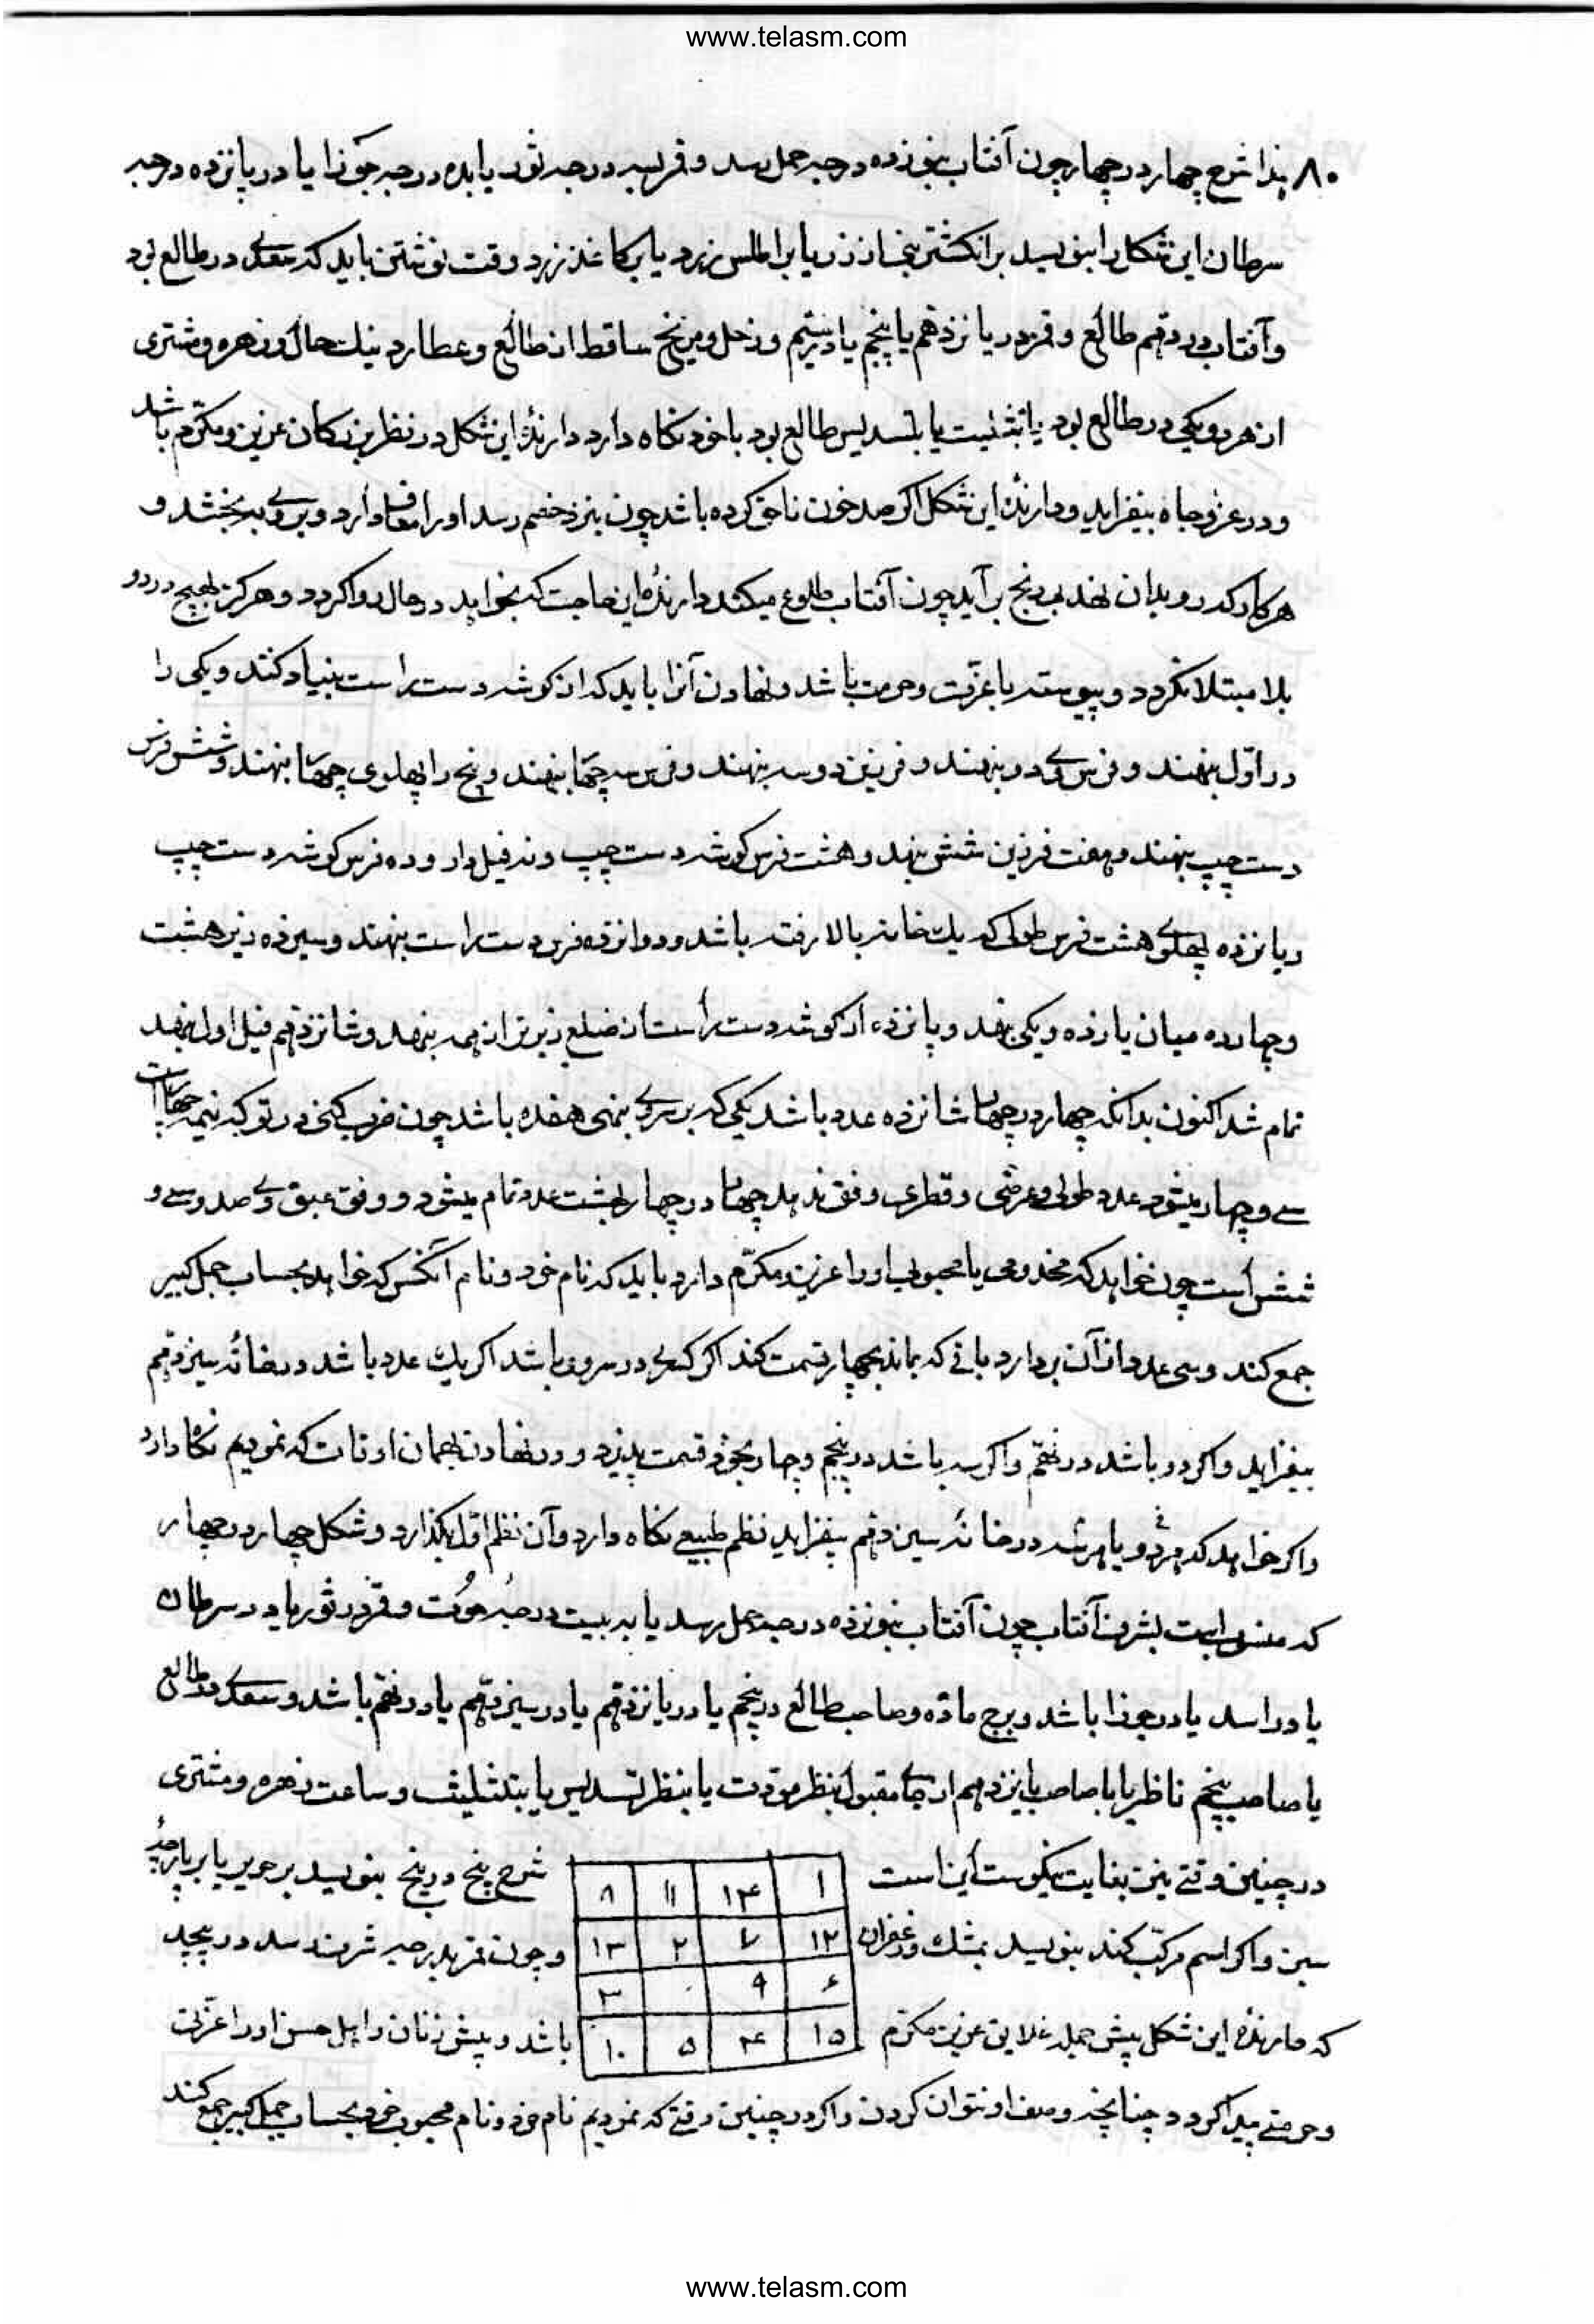 www.telasm.com
۸۰ هذا شرح چهار در چهار چون آفتاب بنوزده درجه حمل رسد و قمر بسه درجه ثور یا بده درجه جوزا یا در پانزده درجه
سرطان این شکل را بنویسد بر انکشتری از زر یا بر اطلس زرد یا بر کاغذ زرد وقت نوشتن باید که سعدی در طالع بود
و آفتاب در دهم طالع و قمر در یازدهم یا پنجم یا و زحل و مریخ ساقط از طالع و عطارد نیک حال و زهره و مشتری
از هر دو یکی در طالع بود یا بتثلیث یا بتسدیس طالع بود با خود نکاه دارد دارندهٔ این شکل در نظر بزرکان عزیز و مکرّم باشد
و در عز و جاه بیفزاید و دارندهٔ این شکل اکر صد خون ناحق کرده باشد چون بنزد خصم رسد او را معاف دارد و بروی بخشد و
هر کار که رو بدان نهد بی رنج بر آید چون آفتاب طلوع میکند دارندهٔ این حاجت که بخواهد در حال روا کردد و هرکز بهیچ درد و
بلا مبتلا نکردد و پیوسته با عزّت و حرمت باشد و نهادن آنرا باید که از کوشه دست راست بنیاد کنند و یکی را
در اوّل بنهند و فرس وی دو بنهند و فرزین دو سه بنهند و فرس سه چهار بنهند و پنج را پهلوی چهار بنهند و شش فرس
دست چپ بنهند و هفت فرزین شش بنهد و هشت فرس کوشه دست چپ و نه فیل دار و ده فرس کوشه دست چپ
و یازده پهلوی هشت فرس طولی که یک خانه بالا رفته باشد و دوازده فرس دست راست بنهند و سیزده زیر هشت
و چهارده میان یازده و یکی بنهد و پانزده از کوشه دست راست از ضلع زیرتر از همه بنهد و شانزدهم فیل اول بنهد
تمام شد اکنون بدانکه چهار در چهار شانزده عدد باشد یکی که بر سر وی بنهی هفده باشد چون ضرب کنی در تو که نیمه چهار است
سی و چهار میشود عدد طولی و عرضی و قطری وفق ند بد چهار در چهار بهشت عدد تمام میشود و وفق عبق وی صد و سی و
شش است چون خواهد که مخدومی یا محبوبی او را عزیز و مکرّم دارد باید که نام خود و نام آنکس که خواهد بحساب جمل کبیر
جمع کند و سی عدد از آن بردارد باقی که بماند بچهار قسمت کند اکر کسری در سوی باشد اکر یک عدد باشد در خانهٔ سیزدهم
بیفزاید و اکر دو باشد در نهم و اکر سه باشد در پنجم و چهار بخود قسمت پذیرد و در نهادن بهمان اوقات که نمودیم نکاه دارد
و اکر خواهد که هر دو یا هر سه در خانهٔ سیزدهم بیفزاید نظم طبیعی نکاه دارد و آن نظم اول بکذارد و شکل چهار در چهار
که منسوبست بشرف آفتاب چون آفتاب بنوزده درجه حمل رسد یا به بیست درجهٔ حوت و قمر در ثور یا در سرطان
یا در اسد یا در جوزا باشد و برج مادّه و صاحب طالع در پنجم یا در یازدهم یا در سیزدهم یا در نهم باشد و سعدی در طالع
یا صاحب پنجم ناظر یا با صاحب یازدهم از جای مقبول بنظر مودت یا بنظر تسدیس یا بتثلیث و ساعت زهره و مشتری
در چنین وقتی نیز بغایت نیکوست این است
۱ ۱۴ ۱۱ ۸
۱۲ ۷ ۲ ۱۳
۶ ۹ ۰ ۳
۱۵ ۴ ۵ ۱۰
شرح پنج در پنج بنویسد بر حریر یا بر پارچهٔ
سبز و اکر اسم مرکّب کند بنویسد بمشک و زعفران
و چون قمر بدرجه شرف رسد در پیچد
که دارندهٔ این شکل پیش جمله خلایق عزیز و مکرّم
باشد و پیش زنان و اهل حسن او را عزّتی
و حرمتی پیدا کردد چنانچه وصف او نتوان کردن و اکر در چنین وقتی که نمودیم نام خود و نام محبوب خود بحساب جمل کبیر جمع کند
www.telasm.com